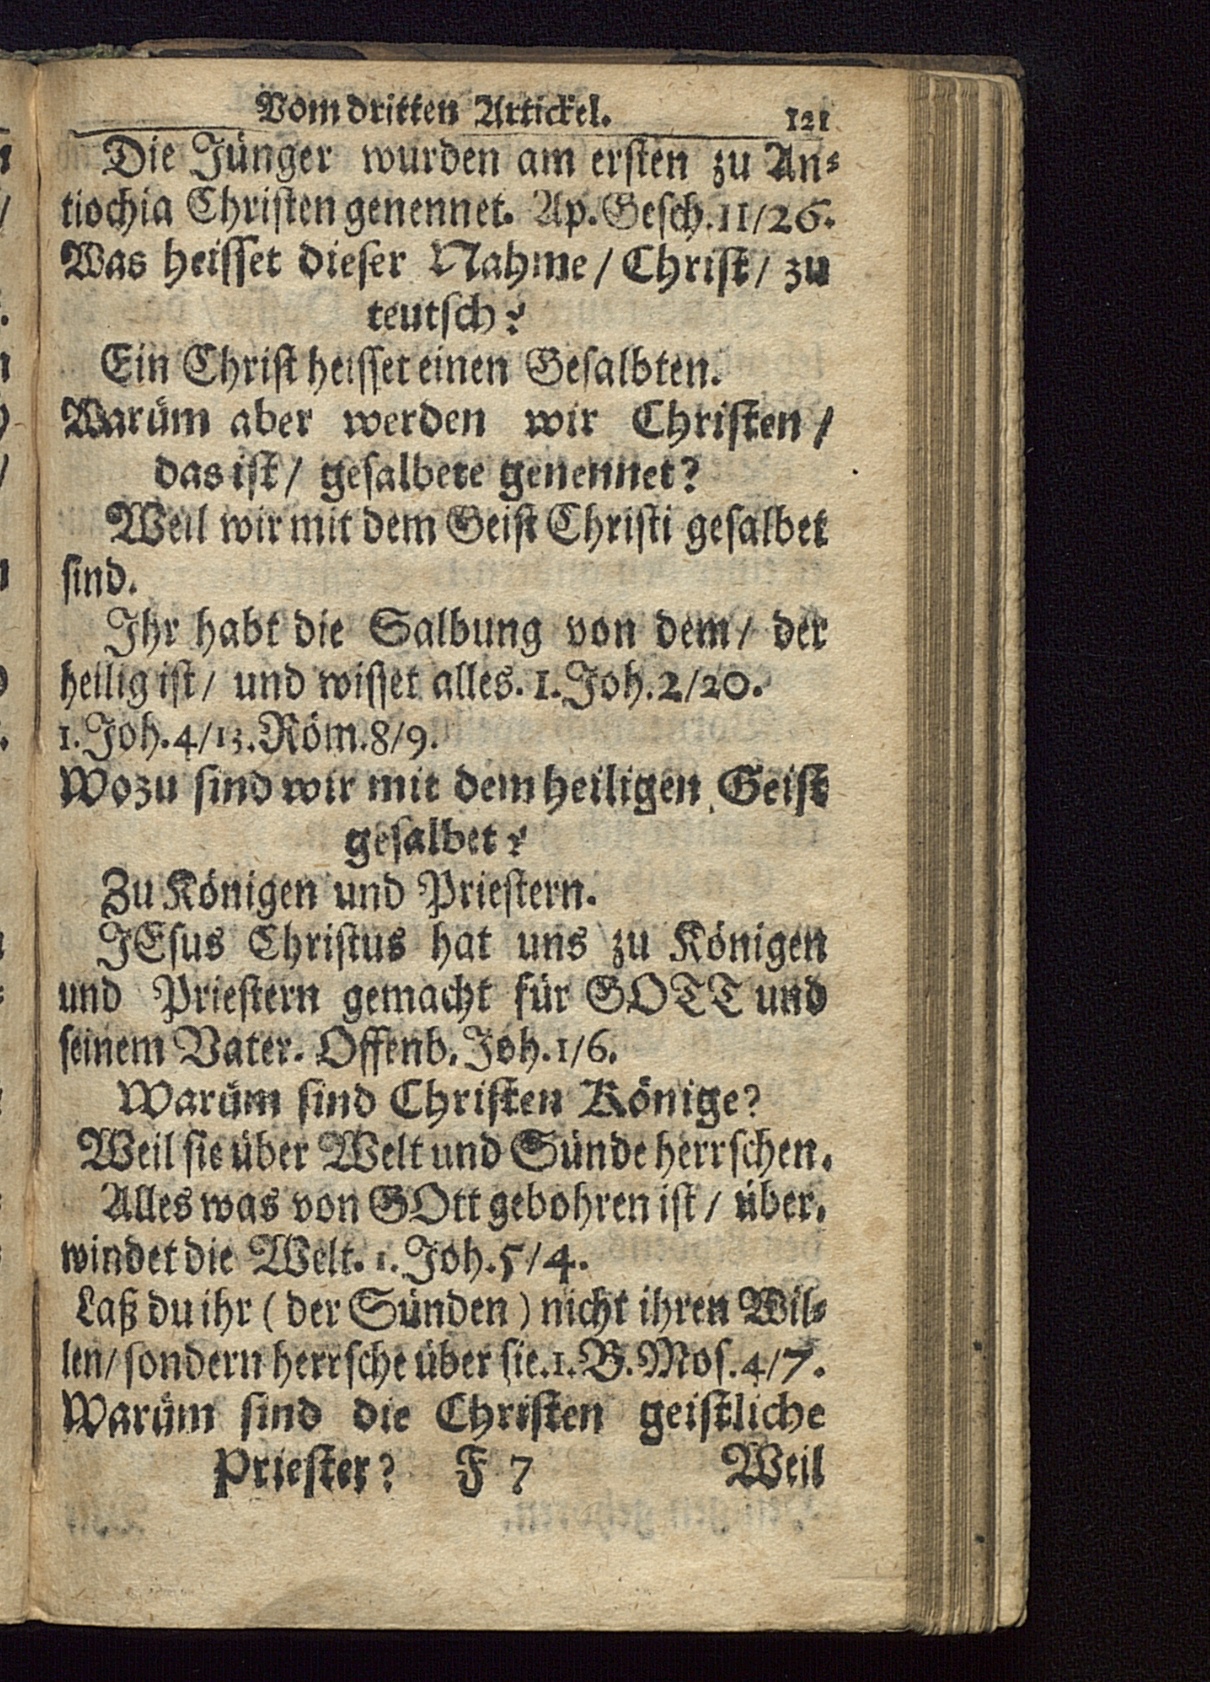 Vom dritten Artickel. 121
Die Jünger wurden am ersten zu An-
tiochia Christen genennet. Ap. Gesch. 11/26.
Was heisset dieser Nahme / Christ / zu
teutsch?
Ein Christ heisset einen Gesalbten.
Warüm aber werden wir Christen /
das ist / gesalbete genennet?
Weil wir mit dem Geist Christi gesalbet
sind.
Ihr habt die Salbung von dem / der
heilig ist / und wisset alles. 1. Joh. 2/20.
1. Joh. 4/13. Röm. 8/9.
Wozu sind wir mit dem heiligen Geist
gesalbet?
Zu Königen und Priestern.
JEsus Christus hat uns zu Königen
und Priestern gemacht für GOTT und
seinem Vater. Offenb. Joh. 1/6.
Warüm sind Christen Könige?
Weil sie über Welt und Sünde herrschen.
Alles was von GOtt gebohren ist / über.
windet die Welt. 1. Joh. 5/4.
Laß du ihr ( der Sünden ) nicht ihren Wil-
len / sondern herrsche über sie. 1. B. Mos. 4/7.
Warüm sind die Christen geistliche
Priester? F 7 Weil